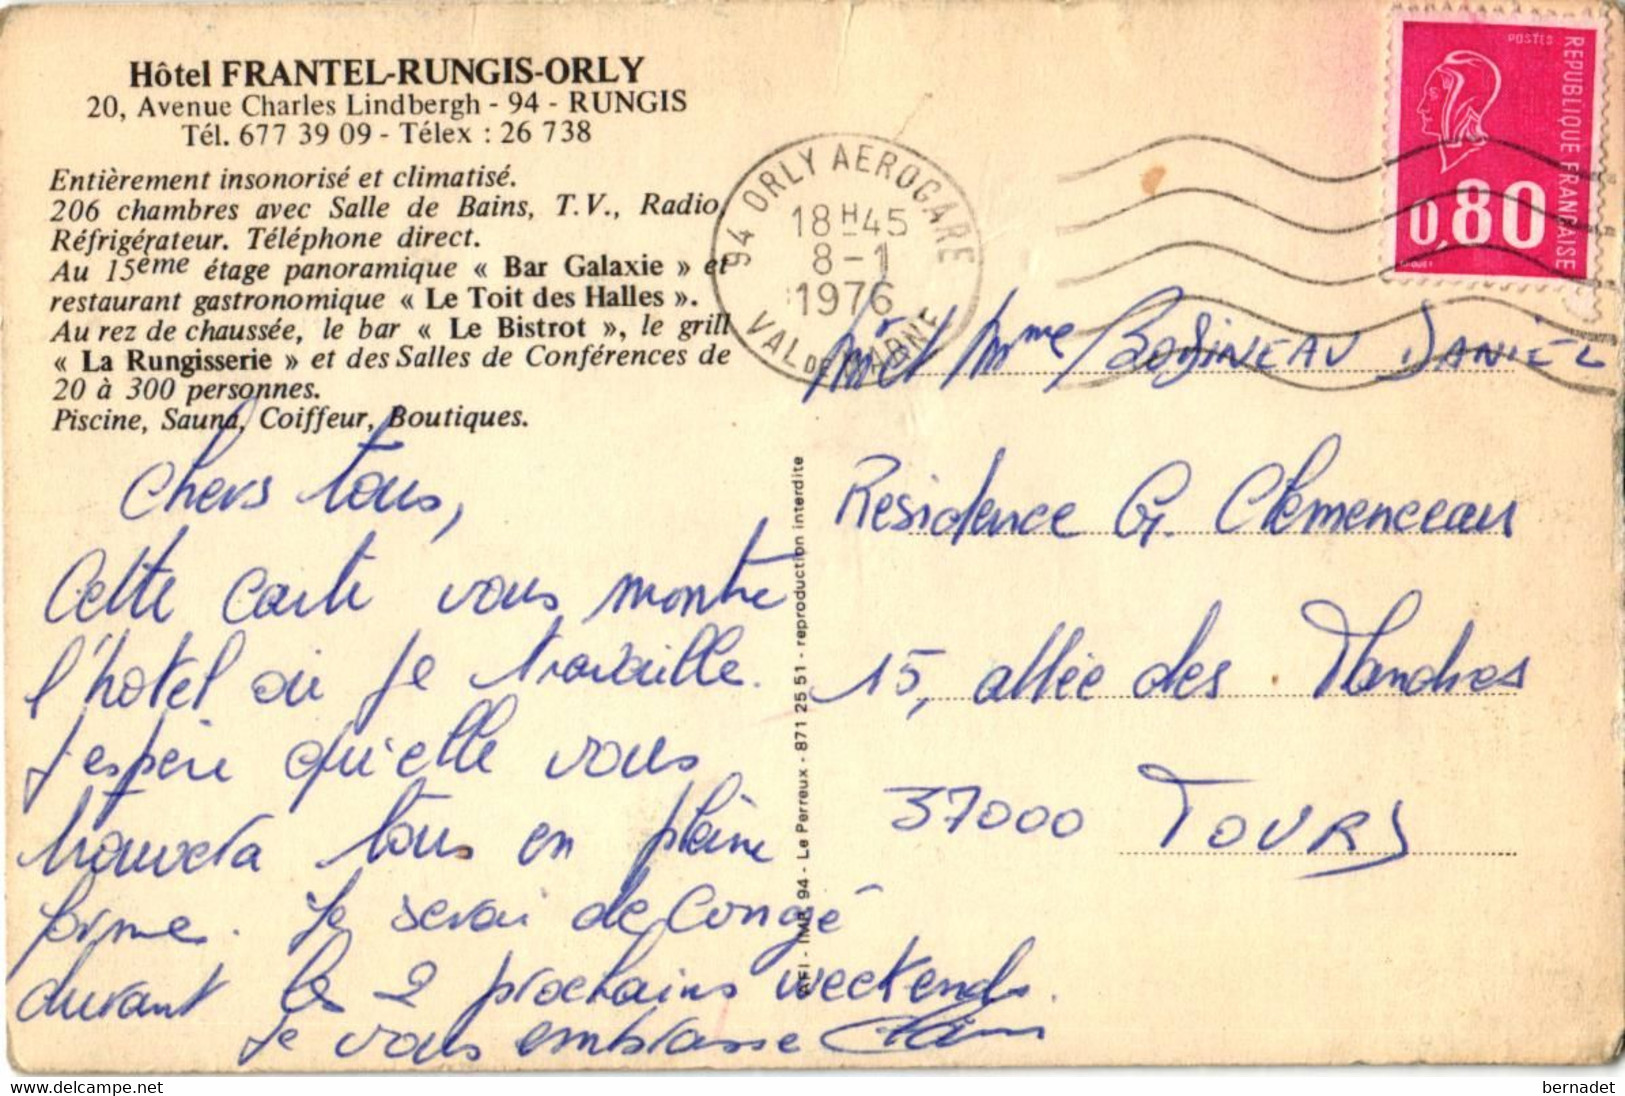 Hôtel FRANTEL-RUNGIS-ORLY
20, Avenue Charles Lindbergh - 94 - RUNGIS
Tél. 677 39 09 - Télex : 26 738
Entièrement insonorisé et climatisé.
206 chambres avec Salle de Bains, T.V., Radio,
Réfrigérateur. Téléphone direct.
Au 15ème étage panoramique « Bar Galaxie » et
restaurant gastronomique « Le Toit des Halles ».
Au rez de chaussée, le bar « Le Bistrot », le grill
« La Rungisserie » et des Salles de Conférences de
20 à 300 personnes.
Piscine, Sauna, Coiffeur, Boutiques.
Chers tous,
Cette carte vous montre
l'hotel où je travaille.
J'espère qu'elle vous
trouvera tous en pleine
forme. Je serai de Congé
durant les 2 prochains weekends.
Je vous embrasse
AFI - IMP. 94 - Le Perreux - 871 25 51 - reproduction interdite
94 ORLY AEROGARE
18H45
8-1
1976
VAL DE MARNE
POSTES
REPUBLIQUE FRANCAISE
0,80
Mr et Mme BODINEAU DANIEL
Residence G. Clemenceau
15, allée des
37000 TOURS
bernadet